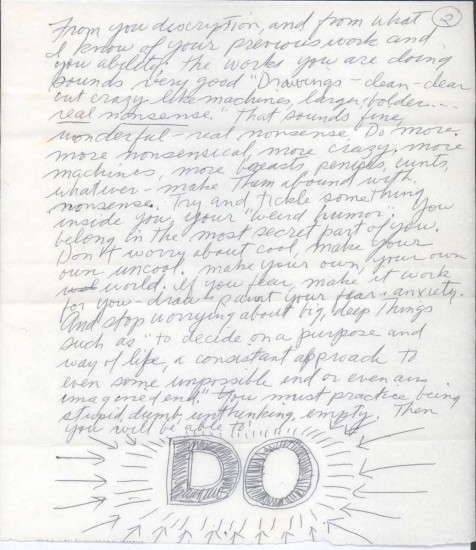 2
From you discription, and from what
I know of your previous work and
you ability; the works you are doing
sounds very good "Drawings – clean – clear
but crazy like machines, larger, bolder....
real nonsense." That sounds fine,
wonderful – real nonsense. Do more.
more nonsensical, more crazy, more
machines, more breasts, penises, cunts,
whatever – make them abound with
nonsense. Try and tickle something
inside you, your "weird humor." You
belong in the most secret part of you.
Don't worry about cool, make your
own uncool. make your own, your own
world. If you fear, make it work
for you – draw & paint your fear & anxiety.
And stop worrying about big, deep things
such as "to decide on a purpose and
way of life, a consistant approach to
even some impossible end or even an
imagined end." You must practice being
stupid, dumb, unthinking, empty. Then
you will be able to
DO